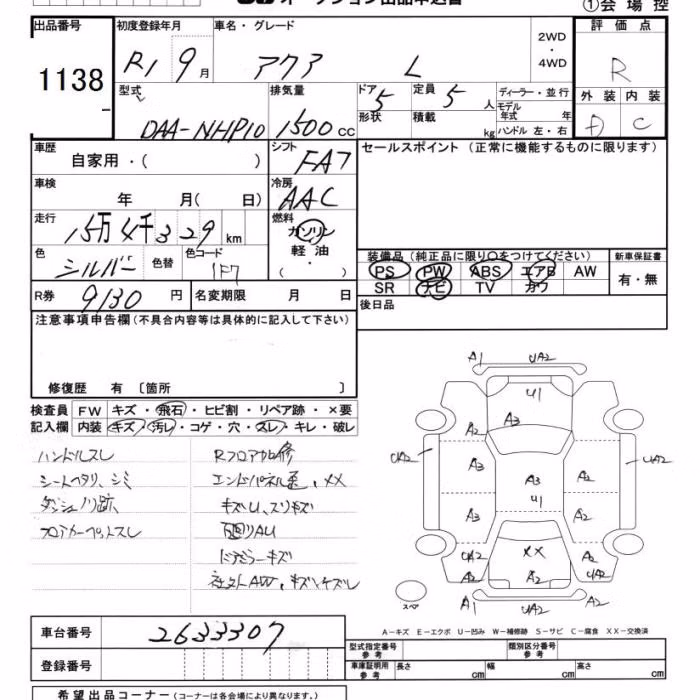 オークション出品申込書
①会場控
出品番号 初度登録年月 車名・グレード 評価点
1138 R1 9月 アクア L 2WD・4WD R
型式 排気量 ドア 定員 ディーラー・並行 外装 内装
DAA-NHP10 1500cc 5 5人 モデル年式 年 D C
形状 積載 kg ハンドル 左・右
車歴 自家用・( ) シフト FA7 セールスポイント (正常に機能するものに限ります)
車検 年 月( 日) 冷房 AAC
走行 15万4千329km 燃料 ガソリン 軽油 ・ ( )
色 シルバー 色替 色コード 1F7
装備品 (純正品に限り○をつけてください) 新車保証書
PS PW ABS エアB AW 有・無
SR ナビ TV カワ
R券 9130円 名変期限 月 日 後日品
注意事項申告欄 (不具合内容等は具体的に記入して下さい)
修復歴 有 [箇所 ]
検査員 FW キズ・飛石・ヒビ割・リペア跡・×要
記入欄 内装 キズ・汚レ・コゲ・穴・スレ・キレ・破レ
ハンドルスレ
シートヘタリ、シミ
ダッシュノリ跡
フロアカーペットスレ
Rフロア
エンドパネル XX
キズU、スリキズ
AU
キズ
社外AW、キズ
A1 UA2
U1
A3
A2 A2
UA2 A3 A3 A2 UA2
U1
A3 A2
UA2 XX A2
A2 A2 UA2
A1 UA2 A1
スペア
A-キズ E-エクボ U-凹み W-補修跡 S-サビ C-腐食 XX-交換済
車台番号 2633307
型式指定番号 参考 類別区分番号 参考
登録番号
車庫証明用 参考 長さ cm 幅 cm 高さ cm
希望出品コーナー (コーナーは各会場により異なります。)